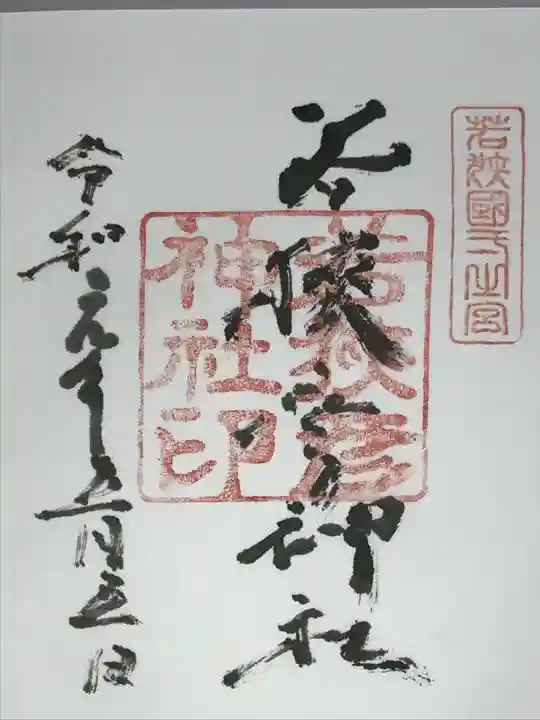 若狭國一之宮
若狭彦神社
若狭彦
神社印
令和元年五月五日